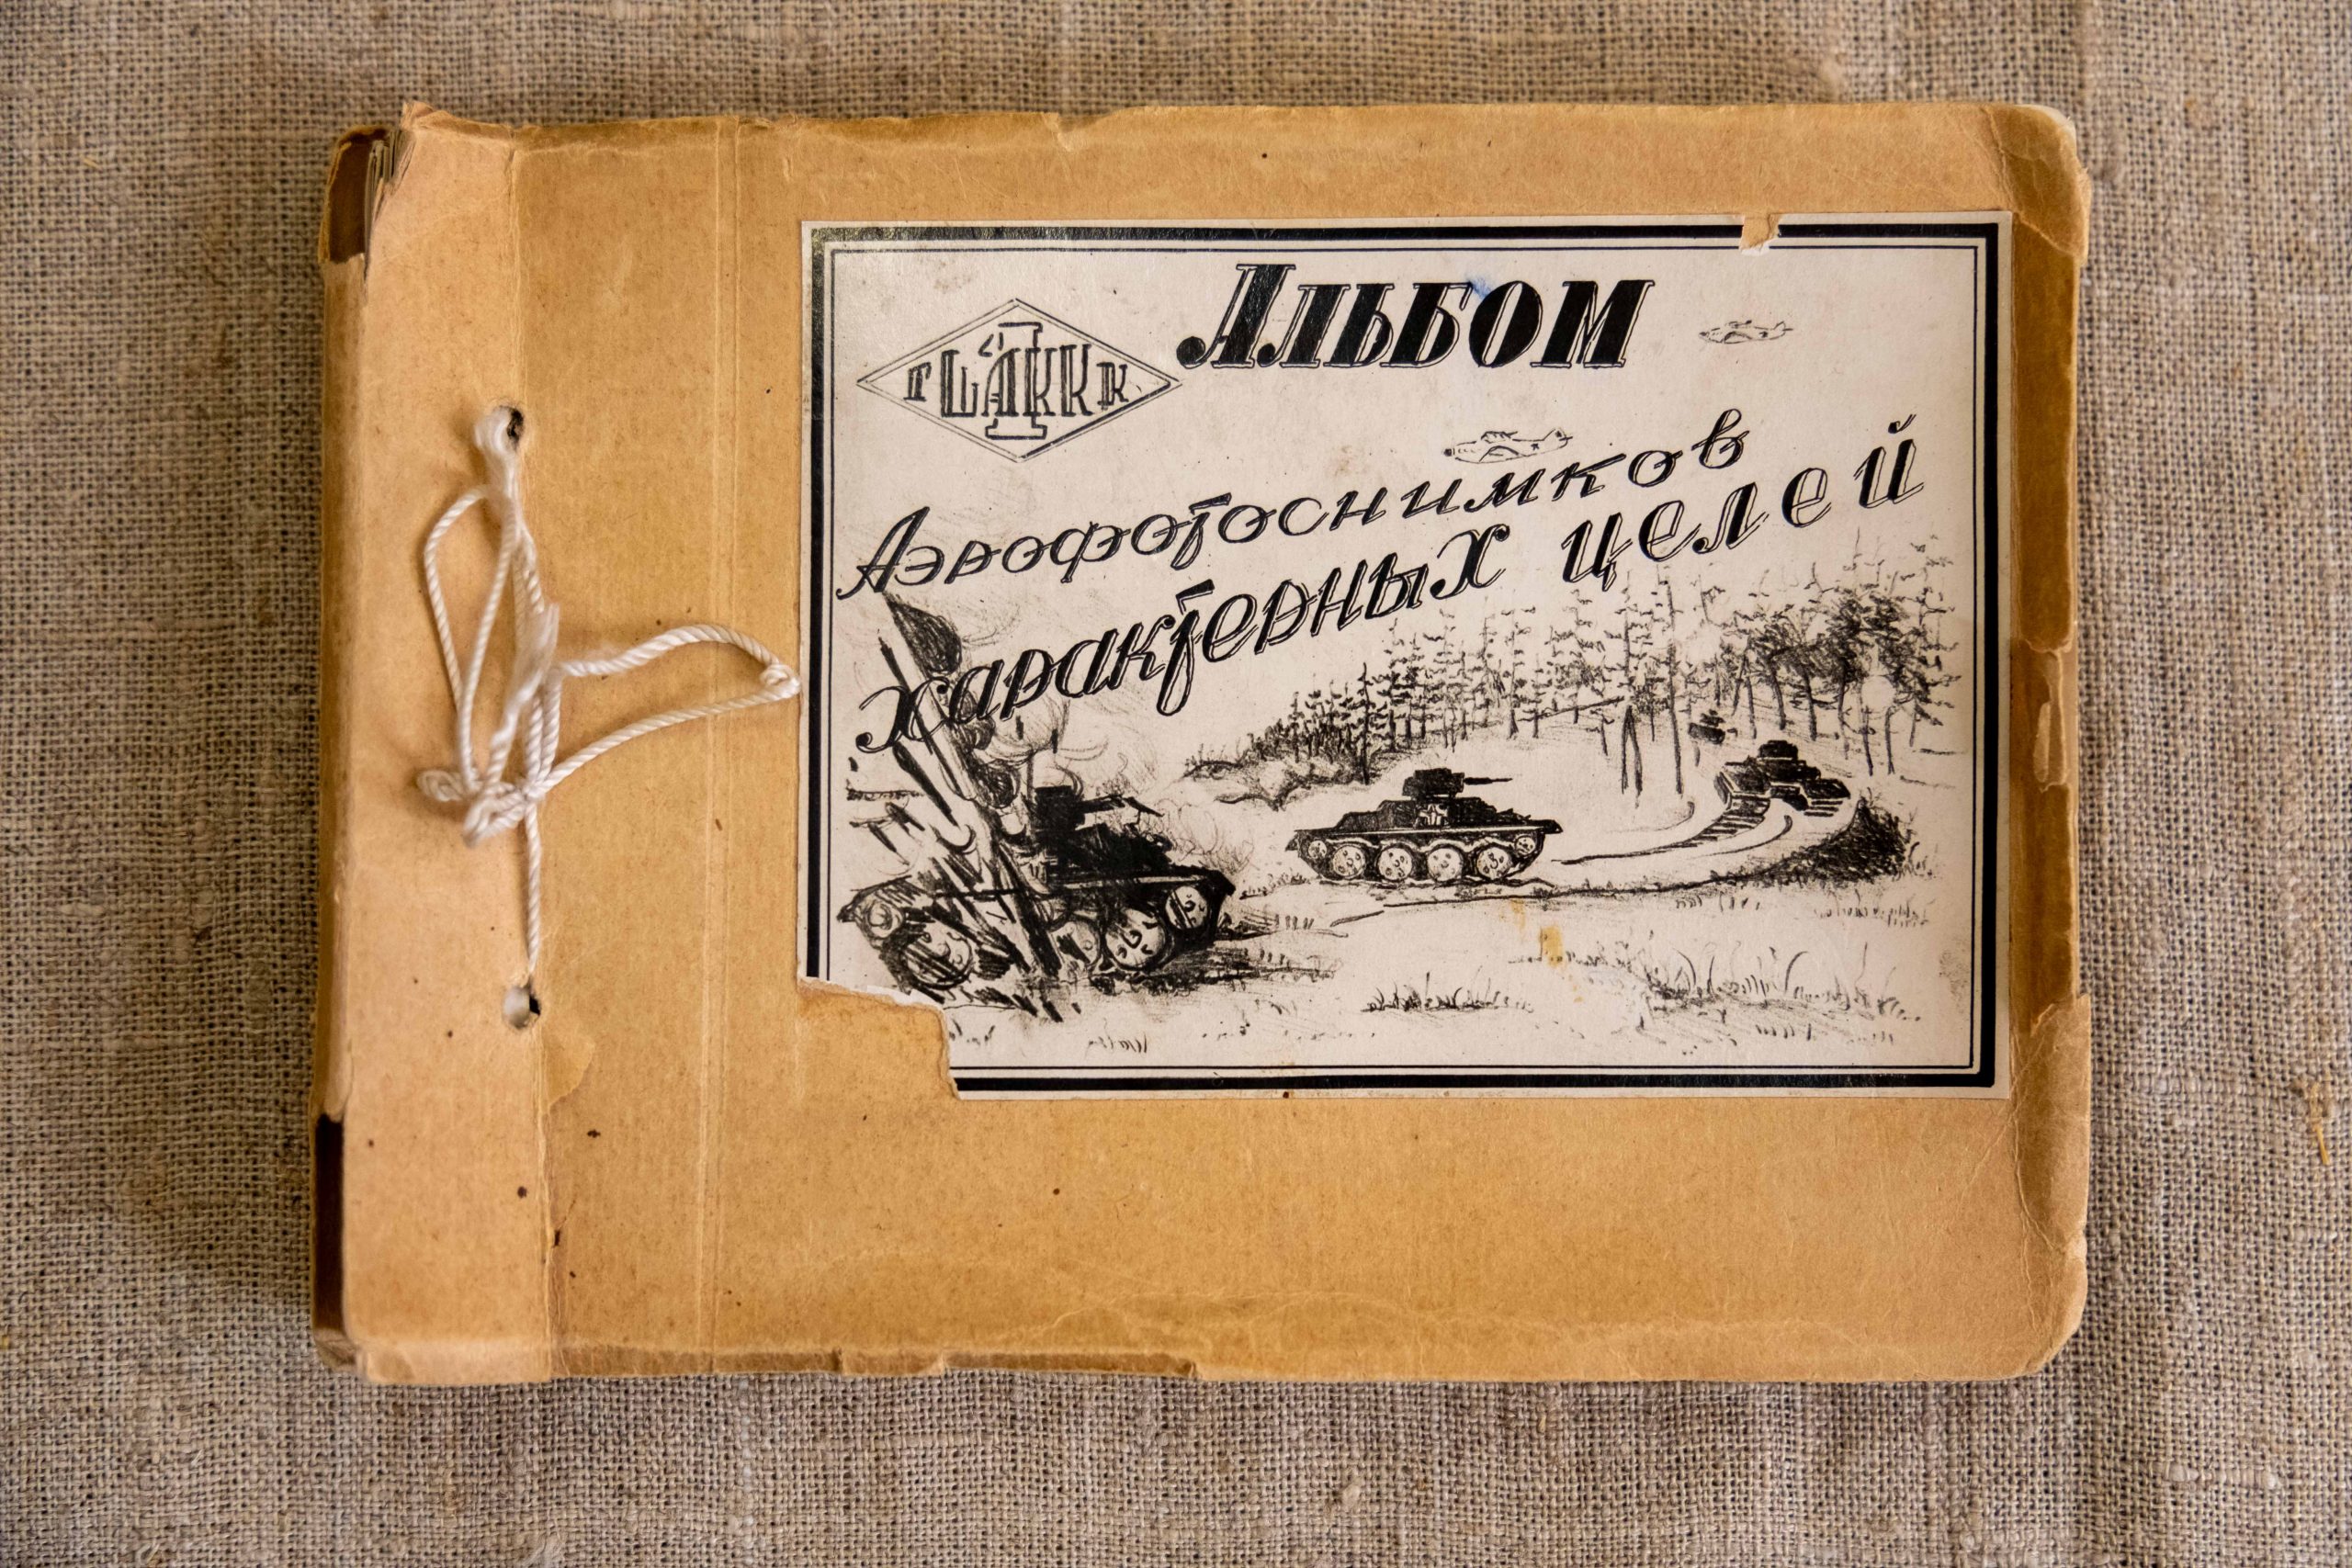 Альбом
Аэрофотоснимков
характерных целей